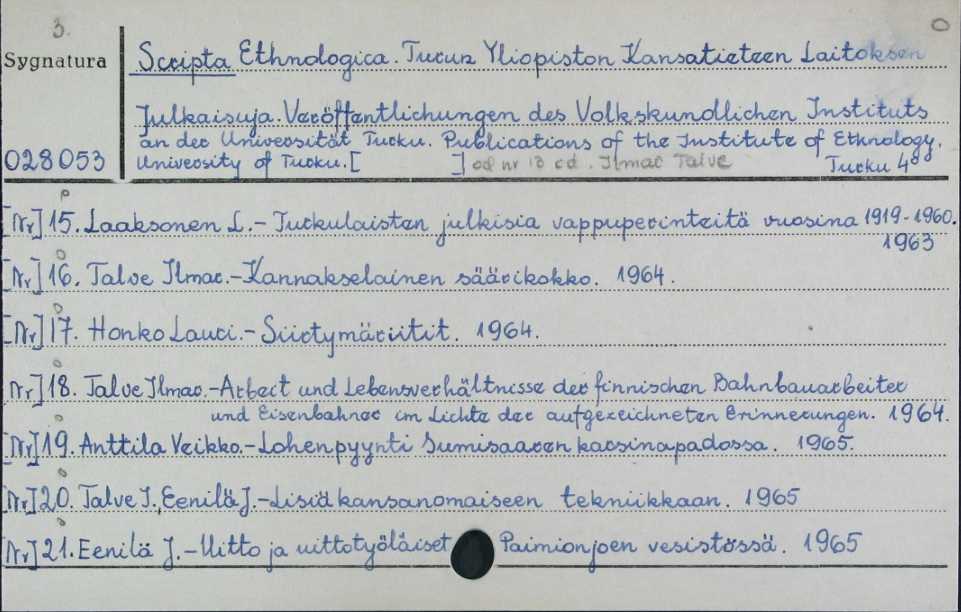 3. 0
Sygnatura Scripta Ethnologica. Turun Yliopiston Kansatieteen Laitoksen
Julkaisuja. Veröffentlichungen des Volkskundlichen Instituts
an der Universität Turku. Publications of the Institute of Ethnology,
028053 University of Turku. [ ] od nr 18 ed. Ilmar Talve Turku 4°
[Nr] 15. Laaksonen L. - Turkulaisten julkisia vappuperinteitä vuosina 1919-1960.
1963
[Nr] 16. Talve Ilmar. - Kannakselainen säärikokko. 1964.
[Nr] 17. Honko Lauri. - Siirtymäriitit. 1964.
[Nr] 18. Talve Ilmar. - Arbeit und Lebensverhältnisse der finnischen Bahnbauarbeiter
und Eisenbahner im Lichte der aufgezeichneten Erinnerungen. 1964.
[Nr] 19. Anttila Veikko. - Lohenpyynti Sumisaaren karsinapadossa. 1965.
[Nr] 20. Talve I., Eenilä J. - Lisiä kansanomaiseen tekniikkaan. 1965
[Nr] 21. Eenilä J. - Uitto ja uittotyöläiset Paimionjoen vesistössä. 1965